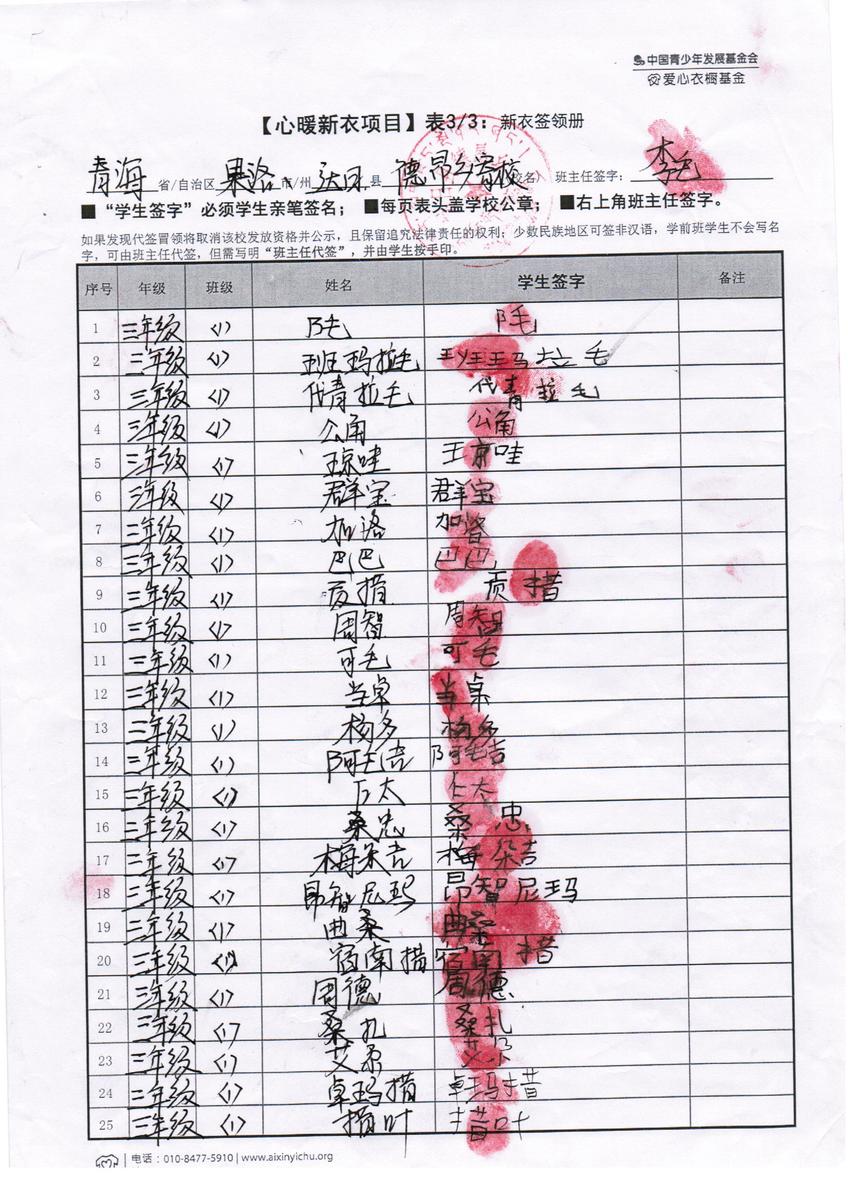 中国青少年发展基金会
爱心衣橱基金
【心暖新衣项目】表3/3：新衣签领册
青海 省/自治区 果洛 市/州 达日 县 德昂乡寄校 校名） 班主任签字： 李毛
■“学生签字”必须学生亲笔签名； ■每页表头盖学校公章； ■右上角班主任签字。
如果发现代签冒领将取消该校发放资格并公示，且保留追究法律责任的权利；少数民族地区可签非汉语，学前班学生不会写名
字，可由班主任代签，但需写明“班主任代签”，并由学生按手印。
序号 年级 班级 姓名 学生签字 备注
1 三年级 <1> 阝毛 阝毛
2 三年级 <1> 班玛拉毛 班玛拉毛
3 三年级 <1> 代青拉毛 代青拉毛
4 三年级 <1> 公角 公角
5 三年级 <1> 王京哇
6 三年级 <1> 群宝 群宝
7 三年级 <1> 加洛 加洛
8 三年级 <1> 巴巴 巴巴
9 三年级 <1> 贡措
10 三年级 <1> 周智 周智
11 三年级 <1> 可毛 可毛
12 三年级 <1> 当卓 当卓
13 三年级 <1> 杨多 杨多
14 三年级 <1> 阿毛吉 阿毛吉
15 三年级 <1>
16 三年级 <1> 桑忠 桑忠
17 三年级 <1> 梅朵吉 梅朵吉
18 三年级 <1> 昂智尼玛 昂智尼玛
19 三年级 <1> 曲桑 曲桑
20 三年级 <1> 宿南措 宿南措
21 三年级 <1> 周德 周德
22 三年级 <1> 桑扎 桑扎
23 三年级 <1>
24 三年级 <1> 卓玛措 卓玛措
25 三年级 <1> 措叶 措叶
电话：010-8477-5910 | www.aixinyichu.org